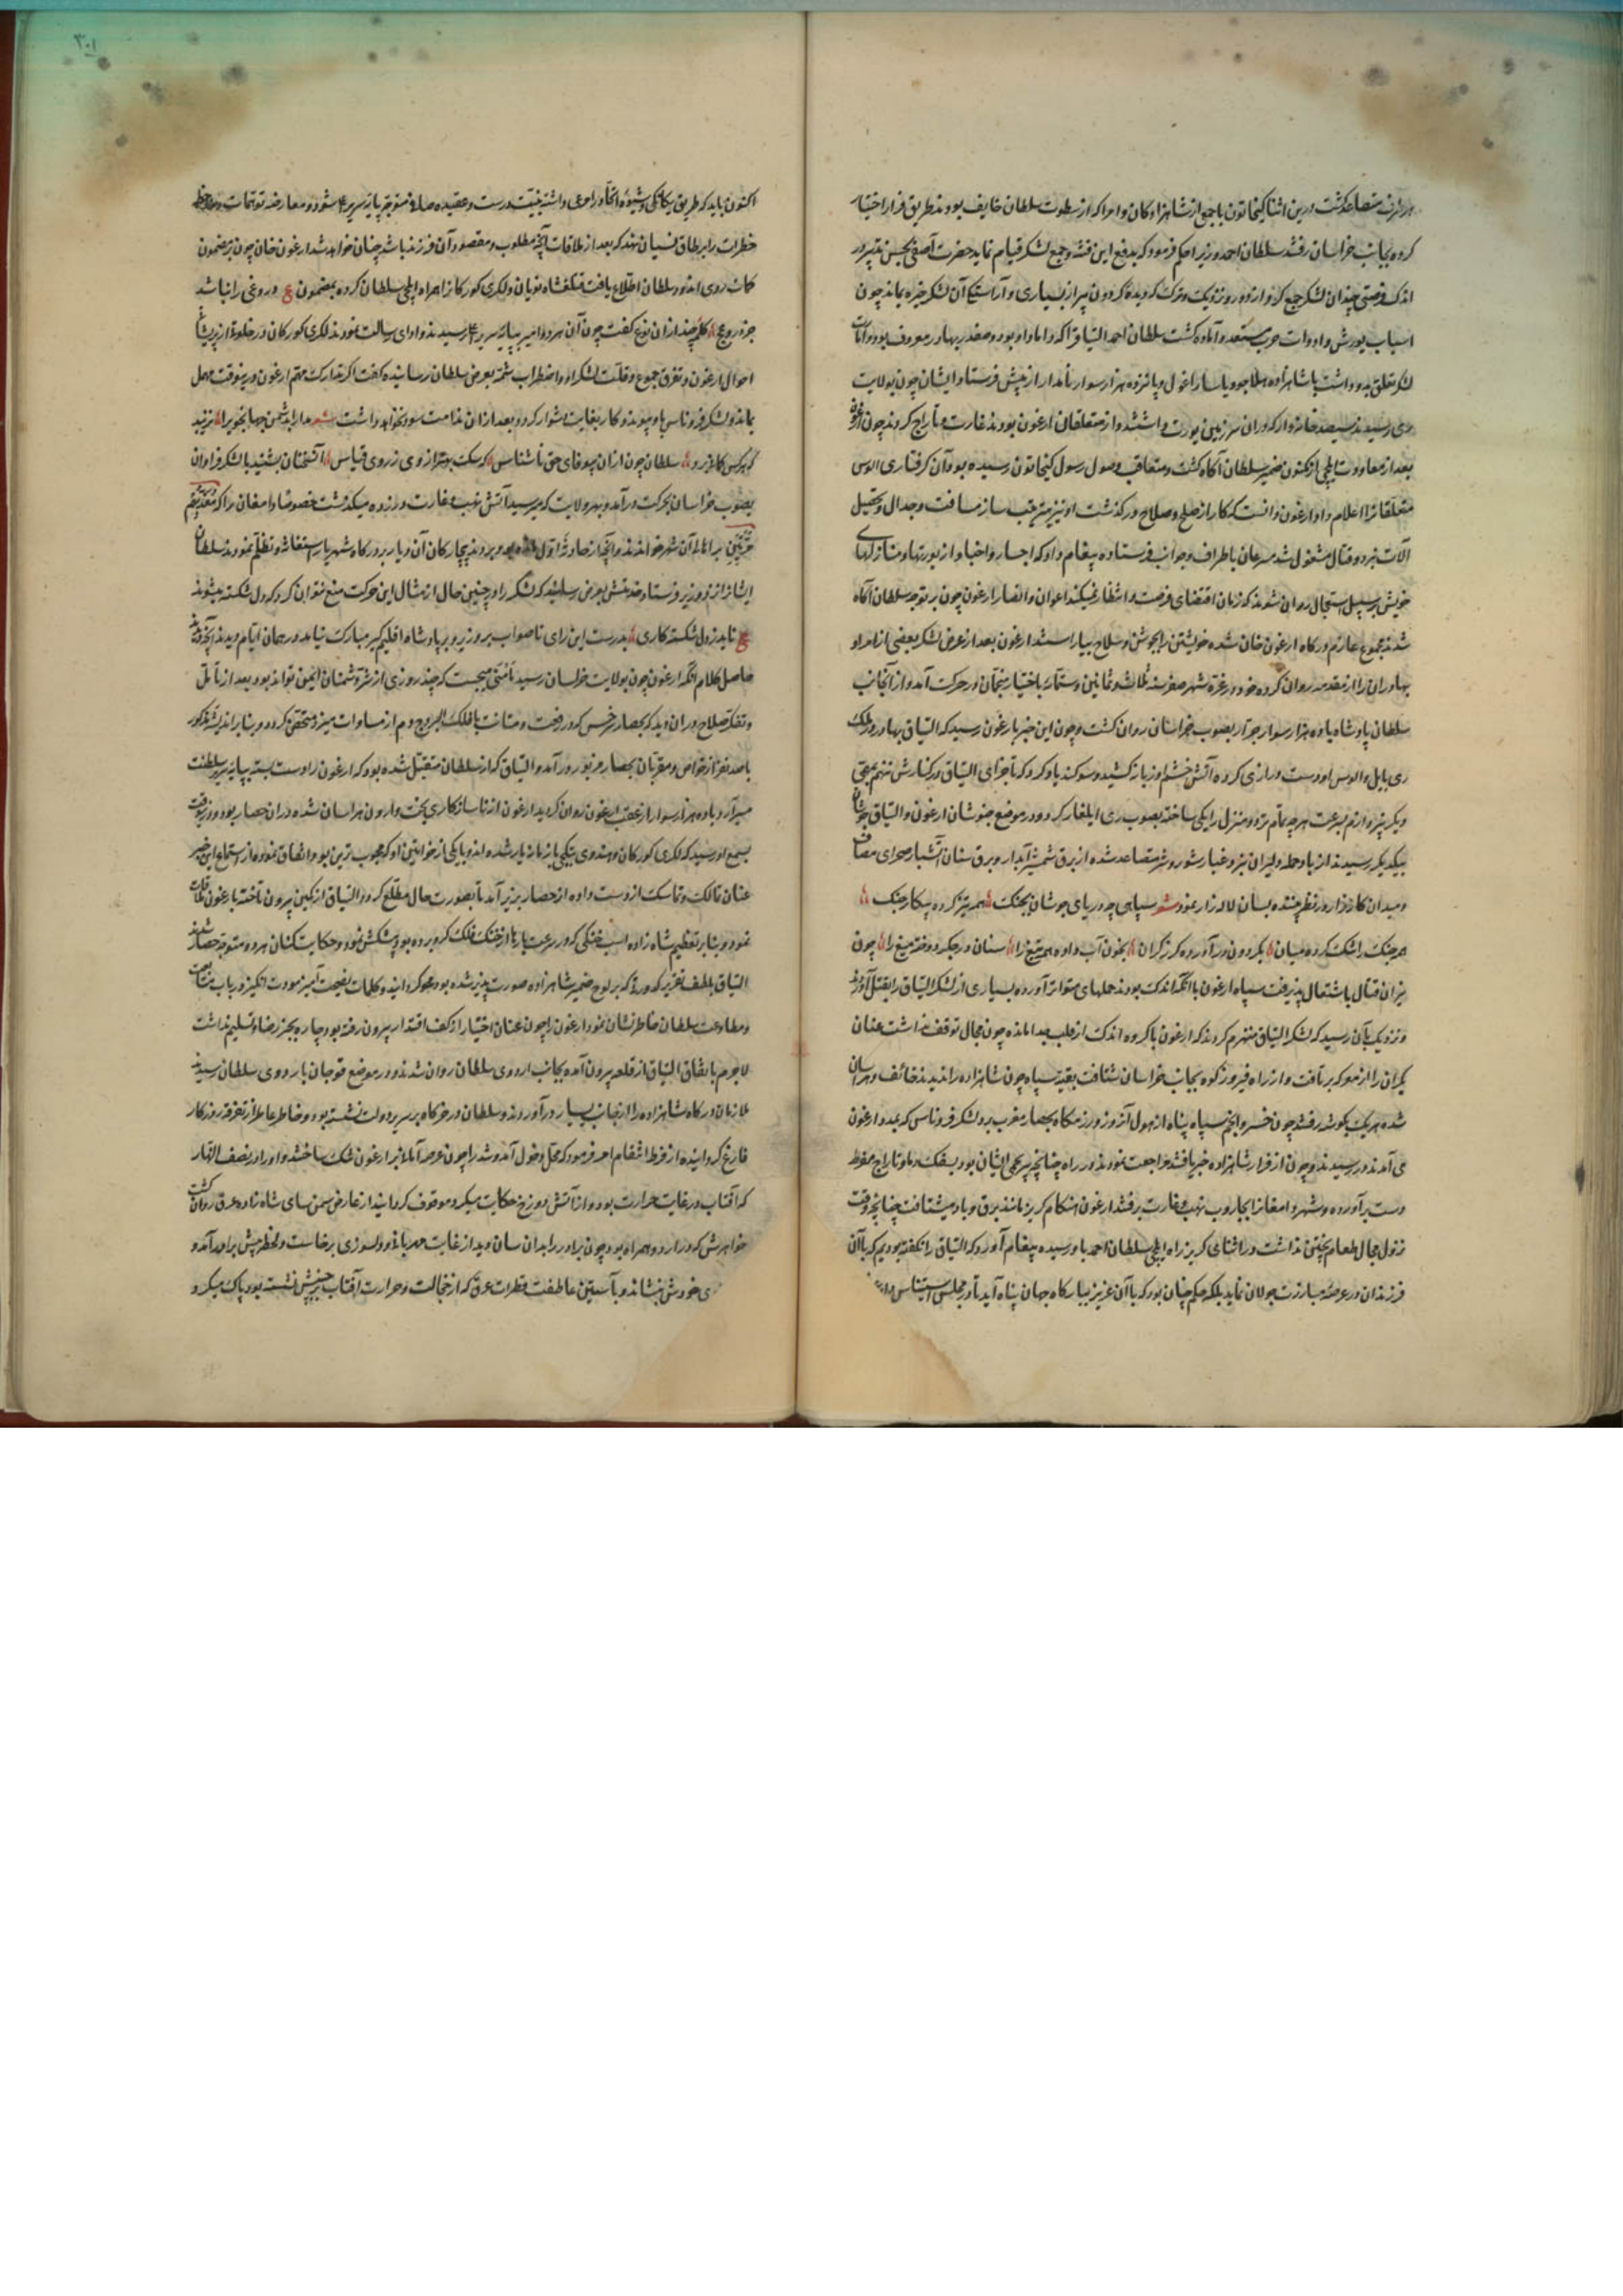 هر طرف متصاعد کشت درین اثنا کیخاتون با جمع از شاهزادکان و امرا که از سطوت سلطان خایف بودند طریق فرار اختیار
کرده بجانب خراسان رفتند سلطان احمد وزیر را حکم فرمود که بدفع این فتنه و جمع لشکر قیام نماید حضرت آصفی بحسن تدبیر در
اندک فرصتی چندان لشکر جمع کرد از دور و نزدیک و ترک که دیدهٔ کردون پیر از بسیاری و آراستکی آن لشکر خیره بماند چون
اسباب یورش و ادوات حرب مستعد و آماده کشت سلطان احمد الیناق را که داماد او بود و بصفدر بهادر معروف بود
لشکر تعلق بدو داشت با شاهزاده هلاجو و یاسار اغول و پانزده هزار سوار نامدار از پیش فرستاد و ایشان چون بولایت
ری رسیدند سیصد خانه‌وار که در ان سرزمین یورت داشتند و از متعلقان ارغون بودند غارت و تاراج کردند چون ارغون
بعد از معاودت ایلچی از مکنون ضمیر سلطان آکاه کشت و متعاقب وصول رسول کیخاتون رسیده بود و آن کرفتاری الوس
متعلقانرا اعلام داد ارغون دانست که کار از صلح و صلاح درکذشت او نیز مترقب ساز مسافت و جدال و تحصیل
آلات نبرد و قتال مشغول شد مسرعان باطراف و جوانب فرستاده پیغام داد که اجبار و اخیار از یورتها و منازلهای
خویش بر سبیل استعجال روان شوند که زمان اقتضای فرصت و انتظار نمیکند اعوان و انصار ارغون چون بر توجه سلطان آکاه
شدند بمجموع عازم درکاه ارغون خان شده خویشتن را بجوشن و سلاح بیاراستند ارغون بعد از عرض لشکر بعضی از امرا و
بهادران را از مقدمه روان کرده خود در غرهٔ شهر صفر سنه ثلاث و ثمانین و ستمائه باختیار منجمان در حرکت آمد و از آنجانب
سلطان پادشاه با ده هزار سوار جرار بصوب خراسان روان کشت و چون این خبر بارغون رسید که الیناق بهادر در ملک
ری بایل و الوس او دست درازی کرده آتش خشم او زبانه کشید و سوکند یاد کرد که تا جزای الیناق در کنارش ننهم بمقر
دیکر نپردازم بسرعت هرچه تمام‌تر دو منزل را یکی ساخته بصوب ری ایلغار کرد و در موضع خبوشان ارغون و الیناق
بیکدیکر رسیدند از باد حمله دلیران نبرد غبار شور و شر متصاعد شده از برق شمشیر آبدار و برق سنان آتشبار صحرای مصاف
و میدان کارزار در نظر بیننده بسان لاله‌زار نمود شعر سپاهی چو دریای جوشان بجنک همه تیز کرده بپیکار جنک
همه جنک را تنک کرده میان بکردون درآورده کرز کران بخون آب داده همه تیغ را سنان در جکر دوخته میغ را چون
نیران قتال باشتعال پذیرفت سپاه ارغون با آنکه اندک بودند حملهای متواتر آورده بسیاری از لشکر الیناق را بقتل آوردند
و نزدیک بآن رسید که لشکر الیناق منهزم کردند که ارغون با کروه اندک از قلب جدا مانده چون مجال توقف نداشت عنان
یکران را از معرکه برتافت و از راه فیروزکوه بجانب خراسان شتافت بقیه سپاه چون شاهزاده را ندیدند خائف و هراسان
شده هر یک بکوشه رفتند چون خسرو انجم سپاه پناه از هول آنروز در رزمکاه بحصار مغرب برد لشکر فرو‌ناس که بمدد ارغون
می آمدند در رسیدند و چون از فرار شاهزاده خبر یافتند مراجعت نمودند و در راه چنانچه پیرعمی ایشان بود بسفک دما و تاراج مفرط
دست برآورده و شهر دامغانرا بجاروب نهب و غارت برفتند ارغون هنکام کریز مانند برق و باد میشتافت چنانچه وقت
نزول مجال طعام پختن نداشت در اثنای کریز راه ایلچی سلطان احمد باو رسیده پیغام آورد که الیناق را نکفته بودیم که با آن
فرزندان در عرصهٔ مبارزت جولان نماید بلکه حکم چنان بود که با آن عزیز ببارکاه جهان پناه آید تا در مجلس استیناس
اکنون باید که طریق یکانکی و شیوهٔ اتحاد را مرعی داشته بنیت درست و عقیدهٔ صافی متوجه پایهٔ سریر اعلی شود و معارضه توهمات
خطرات را بر طاق نسیان نهد که بعد از ملاقات آنچه مطلوب و مقصود آن فرزند باشد چنان خواهد شد ارغون خان چون بر مضمون
کلمات روی اندود سلطان اطلاع یافت قتلغشاه نویان و لکزی کورکانرا همراه ایلچی سلطان کرده بمضمون ع دروغی را نباشد
جز دروغی کلمهٔ چند از ان نوع کفت چون آن هر دو امیر بپایهٔ سریر اعلی رسیدند و ادای رسالت نمودند لکزی کورکان در خلوة از پریشانی
احوال ارغون و تفرق جموع و قلت لشکر او و اضطراب شمهٔ بعرض سلطان رسانیده کفت اکر تدارک مهم ارغون درینوقت مهمل
بماند و لشکر فرو‌ناس باو پیوندد کار بغایت دشوار کردد و بعد از ان ندامت سود نخواهد داشت شعر مدارا بدشمن جهانجو یرا نزیبد
که هرکس کامرزد سلطان چون از ان بیوفای حق ناشناس که سک بهتر از وی ز روی قیاس آنسخنان بشنید با لشکر فراوان
بصوب خراسان بحرکت درآمد و بهر ولایت که میرسید آتش نهب و غارت در زده میکذشت خصوصا دامغان را که
بیچارکان آن دیار بر درکاه شهریار استغاثه و تظلم نمودند سلطان
ایشانرا نزد وزیر فرستاد خدمتش بعرض رسانید که لشکر را در چنین حال از مثال این حرکت منع نتوان کرد که دل شکسته میشوند
ع ناید ز دل شکسته کاری بدرست این رای ناصواب بر وزیر و بر پادشاه اقلیم‌کیر مبارک نیامد و در همان ایام دیدند آنچه دیدند
حاصل کلام آنکه ارغون چون بولایت خراسان رسید مأمنی میجست که چند روزی از شر دشمنان ایمن تواند بود بعد از تأمل
و تفکر صلاح در ان دید که بحصار سرخس که در رفعت و متانت با فلک البروج دم از مساوات میزند متحقق کردد و بنابر اندیشهٔ مذکور
با صد نفر از خواص و مقربان بحصار مزبور درآمد و الیناق که از سلطان متقبل شده بود که ارغون را دست بسته بپایهٔ سریر سلطنت
میرآرد با ده هزار سوار از عقب ارغون روان کردید ارغون از ناسازکاری بخت وارون هراسان شده در ان حصار بود و در آنوقت
بسمع او رسید که لکزی کورکان و هندوی بیتکچی با زمانه یار شده‌اند و با یکی از خواتین او که محبوب‌ترین بود اتفاق نموده از استماع این خبر
عنان تمالک و تماسک از دست داده از حصار بزیر آمد تا بصورت حال مطلع کردد الیناق از کمین بیرون تاخته با ارغون ملاقات
نمود و بنابر تعظیم شاهزاده اسب خنکی که در سرعت بارها از خنک فلک کرو برده بود پیشکش نمود و حکایت‌کنان هر دو متوجه حصار شدند
الیناق بلطف تقریر کدورتی که بر لوح ضمیر شاهزاده صورت‌پذیر شده بود محو کردانید و کلمات نصیحت‌آمیز مودت‌انکیز در باب متابعت
و مطاوعت سلطان خاطرنشان نمود ارغون را چون عنان اختیار از کف اقتدار بیرون رفته بود چاره بجز رضا و تسلیم نداشت
لاجرم باتفاق الیناق از قلعه بیرون آمده بجانب اردوی سلطان روان شدند و در موضع قوجان باردوی سلطان رسیدند
ملازمان درکاه شاهزاده را از جانب یسار درآوردند و سلطان در خرکاه بر سریر دولت نشسته بود و خاطر عاطر از تفرقهٔ روزکار
فارغ کردانیده از فرط انتقام امر فرمود که محل دخول آمد و شد را چون عرصه آمال بر ارغون تنک ساختند و او را در نصف النهار
که آفتاب در غایت حرارت بود و از آتش دوزخ حکایت میکرد موقوف کردانید از عارض سمن‌سای شاهزاده عرق روان کشت
خواهرش که در اردو همراه بود چون برادر را بدان سان دید از غایت مهربانی و دلسوزی برخاست و لحظهٔ پیش برادر آمد و
ی خودش بنشاند و بآستین عاطفت قطرات عرق که از خجالت و حرارت آفتاب بر جبینش نشسته بود پاک میکرد و
۳۰۱